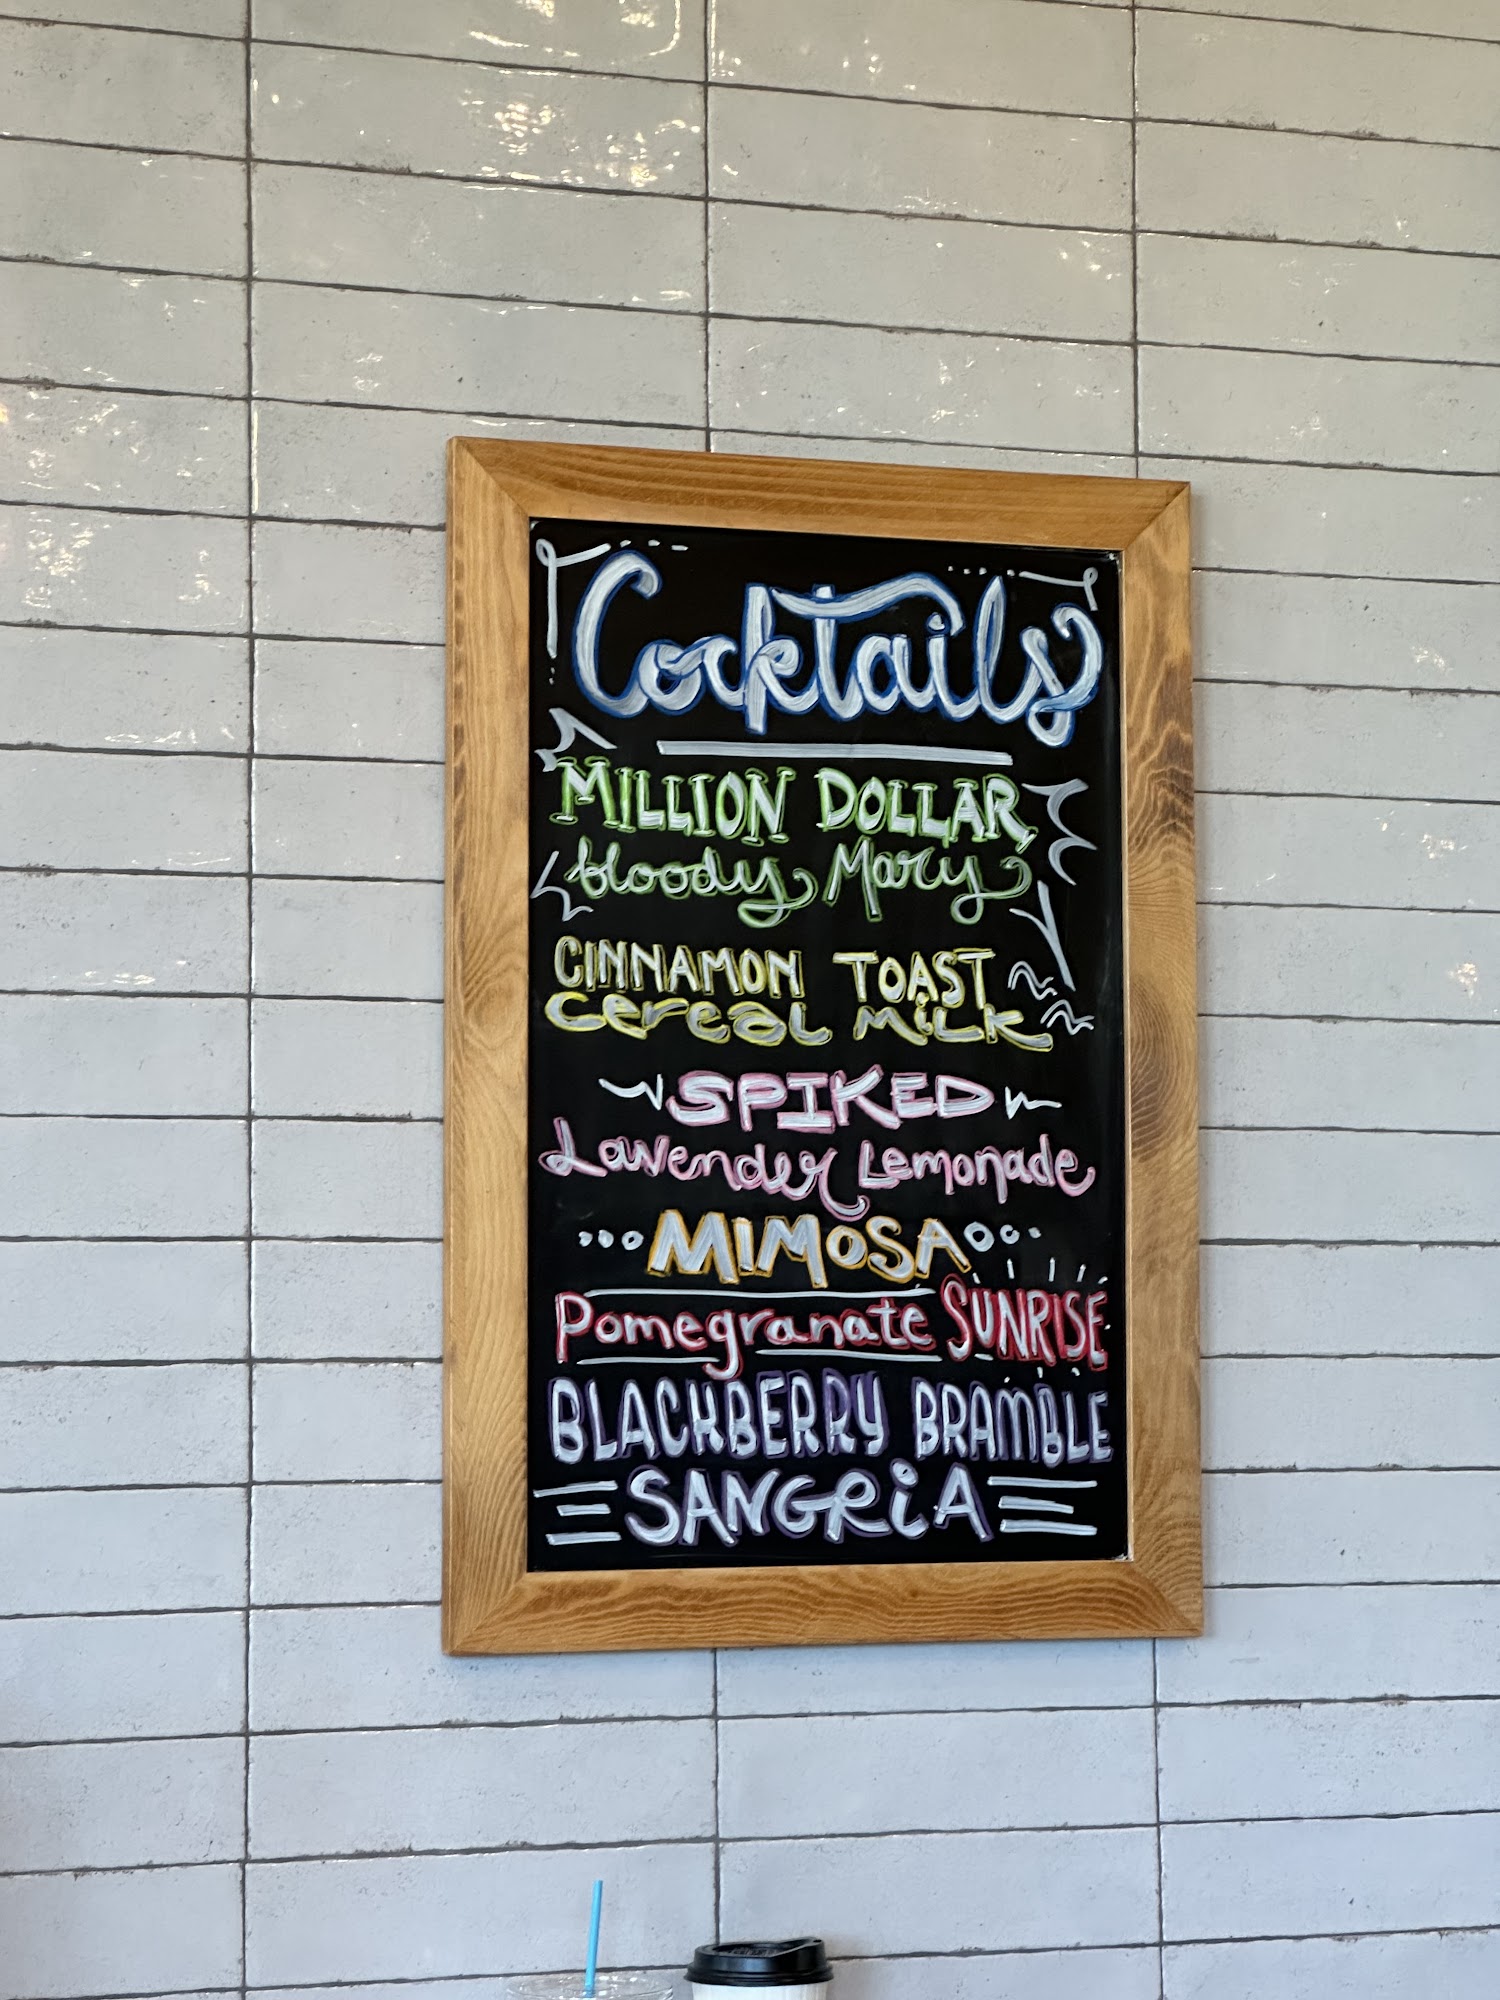 Cocktails
MILLION DOLLAR
bloody Mary
CINNAMON TOAST
cereal MiLK
SPIKED
Lavender Lemonade
MIMOSA
Pomegranate SUNRISE
BLACKBERRY BRAMBLE
SANGRiA